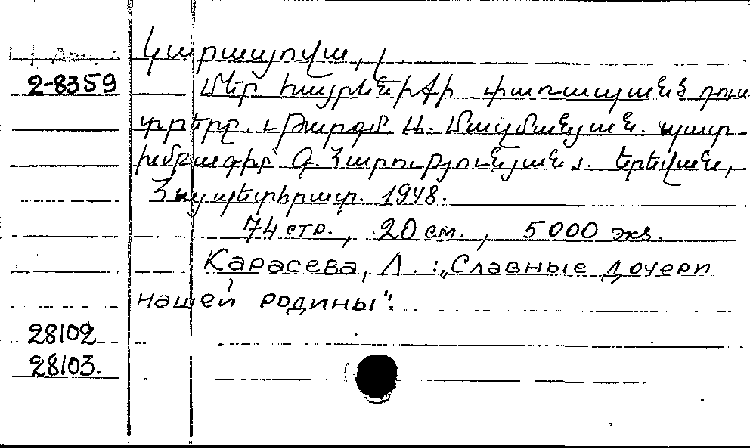 Կարասյովա, Լ.
2-8359 Մեր հայրենիքի փառապանծ դուս
տրերը. Թարգմ. Ա. Մասմանյան. պատ.
խմբագիր՝ Գ. Հարությունյան. Երևան,
Հայպետհրատ. 1948.
74 стр., 20 см., 5000 экз.
Карасева, Л. : „Славные дочери
нашей родины".
28102
28103.